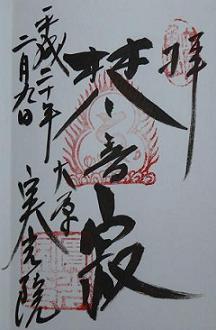 奉拝
梵音寂
大原
実光院
平成二十年
二月九日